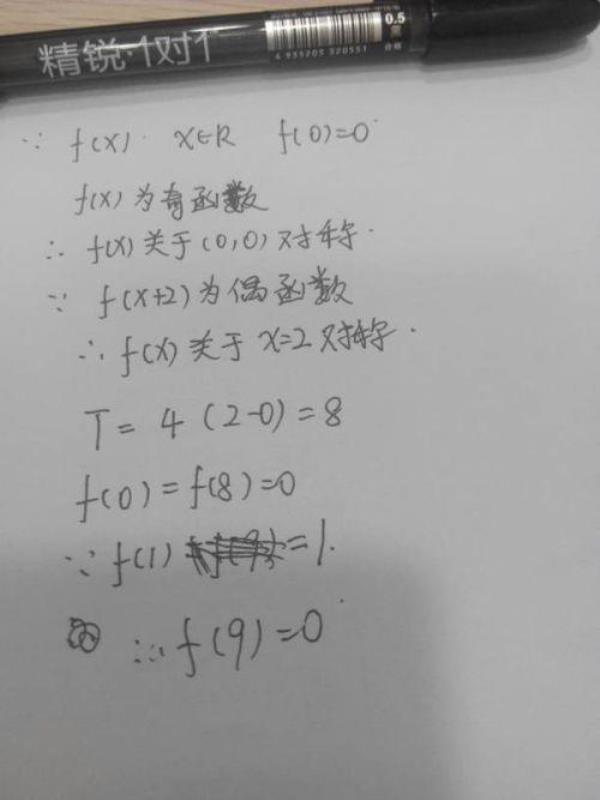 精锐·1对1
0.5
4 935205 320551
∵ f(x). x∈R f(0)=0
f(x)为奇函数
∴ f(x)关于(0,0)对称.
∵ f(x+2)为偶函数
∴ f(x)关于x=2对称.
T= 4(2-0)=8
f(0)=f(8)=0
∵ f(1) =1.
∴ f(9)=0